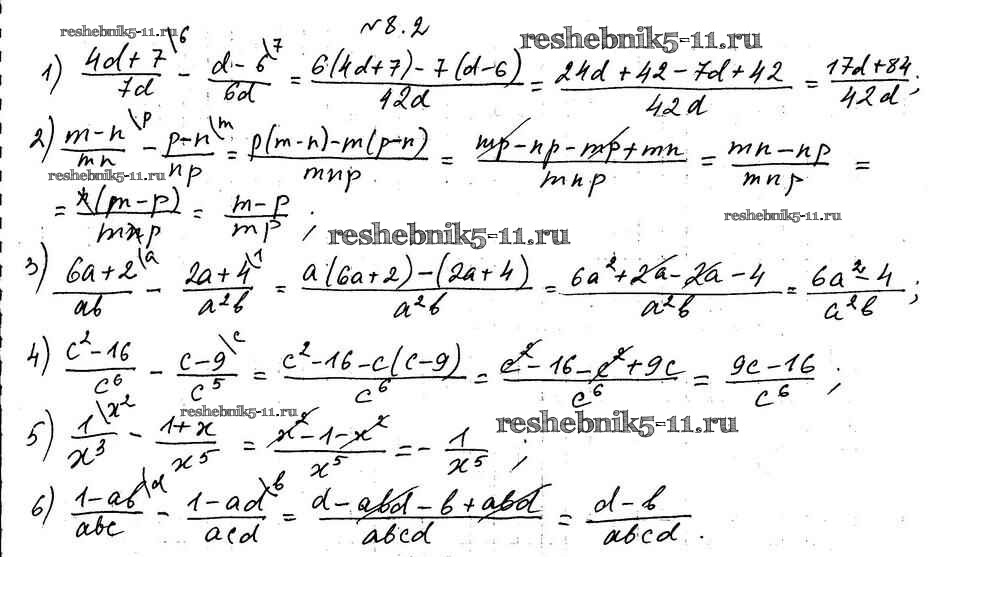 №8.2
reshebnik5-11.ru reshebnik5-11.ru
1) (4d+7)/(7d) \6 - (d-6)/(6d) \7 = (6(4d+7)-7(d-6))/(42d) = (24d+42-7d+42)/(42d) = (17d+84)/(42d);
2) (m-n)/(mn) \p - (p-n)/(np) \m = (p(m-n)-m(p-n))/(mnp) = (mp-np-mp+mn)/(mnp) = (mn-np)/(mnp) =
reshebnik5-11.ru
= (n(m-p))/(mnp) = (m-p)/(mp);
reshebnik5-11.ru reshebnik5-11.ru
3) (6a+2)/(ab) \a - (2a+4)/(a²b) \1 = (a(6a+2)-(2a+4))/(a²b) = (6a²+2a-2a-4)/(a²b) = (6a²-4)/(a²b);
4) (c²-16)/(c⁶) - (c-9)/(c⁵) \c = (c²-16-c(c-9))/(c⁶) = (c²-16-c²+9c)/(c⁶) = (9c-16)/(c⁶);
reshebnik5-11.ru reshebnik5-11.ru
5) 1/(x³) \x² - (1+x)/(x⁵) = (x²-1-x²)/(x⁵) = - 1/(x⁵);
6) (1-ab)/(abc) \d - (1-ad)/(acd) \b = (d-abd-b+abd)/(abcd) = (d-b)/(abcd).